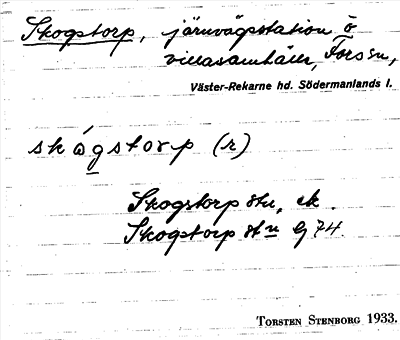 Skogstorp, järnvägsstation o
villasamhälle, Fors sn,
Väster-Rekarne hd. Södermanlands l.
skógstorp (r)
Skogstorp stn, ek.
Skogstorp stn Gj 74.
TORSTEN STENBORG 1933.